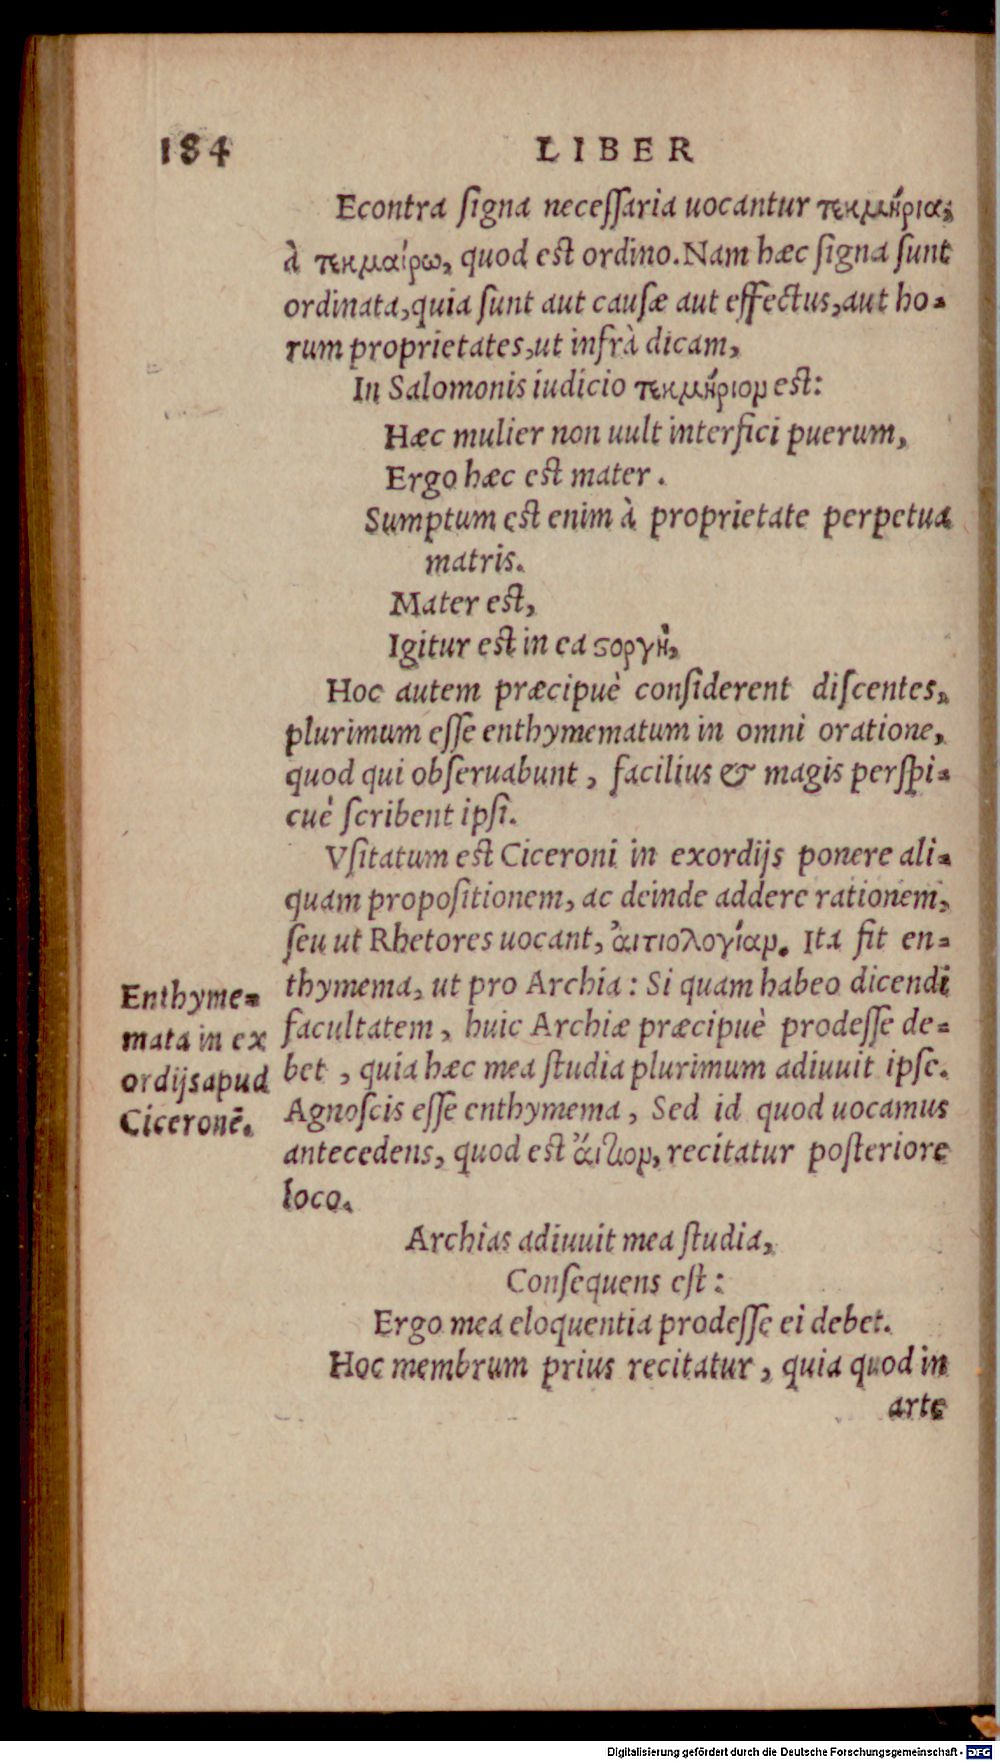 184
LIBER
Econtra ſigna neceſſaria uocantur τεκμήρια,
à τεκμαίρω, quod est ordino. Nam hæc ſigna ſunt
ordinata, quia ſunt aut cauſæ aut effectus, aut ho-
rum proprietates, ut infrà dicam,
In Salomonis iudicio τεκμήριον est:
Hæc mulier non uult interfici puerum,
Ergo hæc est mater.
Sumptum est enim à proprietate perpetua
matris.
Mater est,
Igitur est in ea ϛοργὴ,
Hoc autem præcipuè conſiderent diſcentes,
plurimum eſſe enthymematum in omni oratione,
quod qui obſeruabunt, facilius & magis perſpi-
cuè ſcribent ipſi.
Vſitatum est Ciceroni in exordijs ponere ali-
quam propoſitionem, ac deinde addere rationem,
ſeu ut Rhetores uocant, ἀιτιολογίαν. Ita fit en-
thymema, ut pro Archia: Si quam habeo dicendi
facultatem, huic Archiæ præcipuè prodeſſe de-
bet, quia hæc mea ſtudia plurimum adiuuit ipſe.
Agnoſcis eſſe enthymema, Sed id quod uocamus
antecedens, quod est ἄιτιον, recitatur poſteriore
loco.
Enthyme-
mata in ex
ordijs apud
Ciceronē.
Archias adiuuit mea ſtudia,
Conſequens eſt:
Ergo mea eloquentia prodeſſe ei debet.
Hoc membrum prius recitatur, quia quod in
arte
Digitalisierung gefördert durch die Deutsche Forschungsgemeinschaft - DFG